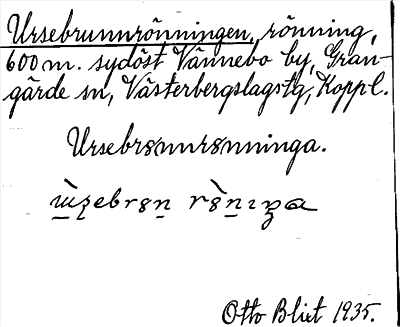 Ursebrunnrönningen, rönning,
600 m. sydöst Vännebo by, Gran-
gärde sn, Västerbergslagstg, Koppl.
Ursebrȣnnrȣnninga.
Otto Blixt 1935.